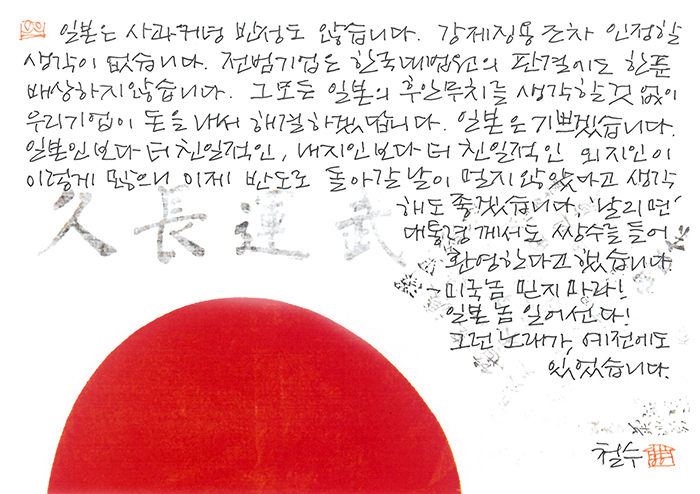 일본은 사과커녕 반성도 않습니다. 강제징용 조차 인정할
생각이 없습니다. 전범기업은 한국대법원의 판결에도 한푼
배상하지않습니다. 그모든 일본의 후안무치를 생각할것 없이
우리기업이 돈을내서 해결하겠답니다. 일본은기쁘겠습니다.
일본인보다 더 친일적인, 내지인보다 더 친일적인 외지인이
이렇게 많으니 이제 반도로 돌아갈날이 멀지않았다고 생각
해도 좋겠습니다. '날리면'
대통령께서도 쌍수를 들어
환영한다고했습니다.
미국놈 믿지마라!
일본놈 일어선다!
그런노래가, 예전에도
있었습니다.
久長運武
철수